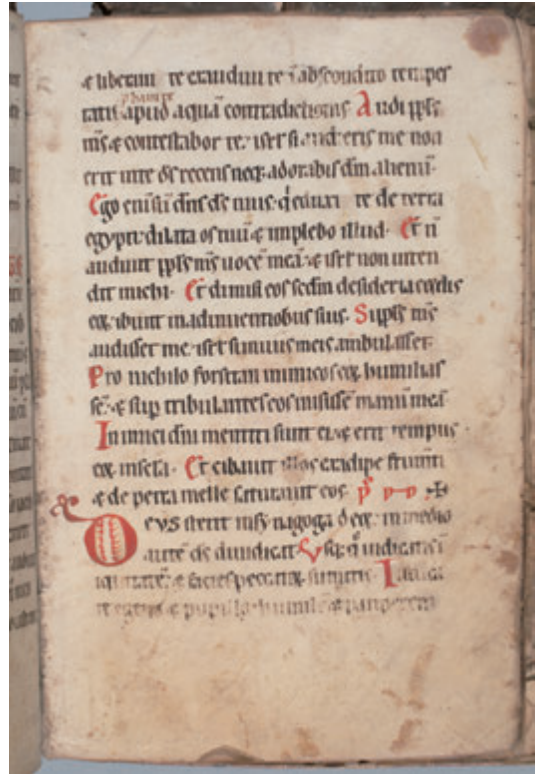 & liberaui te exaudiui te ī abscondito tempes
tatis apud aquā contradictionis Audi ppl̄s
m̄s & contestabor te: isrł si audieris me non
erit inte ds̄ recens neq; adorabis dm̄ alienū·
Ego eni sū dn̄s ds̄ tuus· q̇ eduxi te de terra
egypti· dilata os tuū & implebo illud· Et n̄
audiuit ppl̄s m̄s uocē meā· & isrł non inten
dit michi· Et dimisi eos sedm̄ desideria cordis
eoꝝ ibunt in adinuentionibus suis· Si ppl̄s m̄s
audisset me· isrł si in uiis meis ambulasset·
Pro nichilo forsitan inimicos eoꝝ humilias
sē· & sup tribulantes eos misissē manū meā·
Inimici dn̄i mentiti sunt ei· & erit tempus
eoꝝ in scl̄a· Et cibauit illos ex adipe frumti
& de petra melle saturauit eos·
Deus stetit in synagoga deoꝝ· in medio
autē ds̄ diiudicat Vsq; q̇ iudicatis ī
iquitatē· & facies peccatoꝝ sumitis· Iudica
te egeno & pupillo· humilē & pauperem